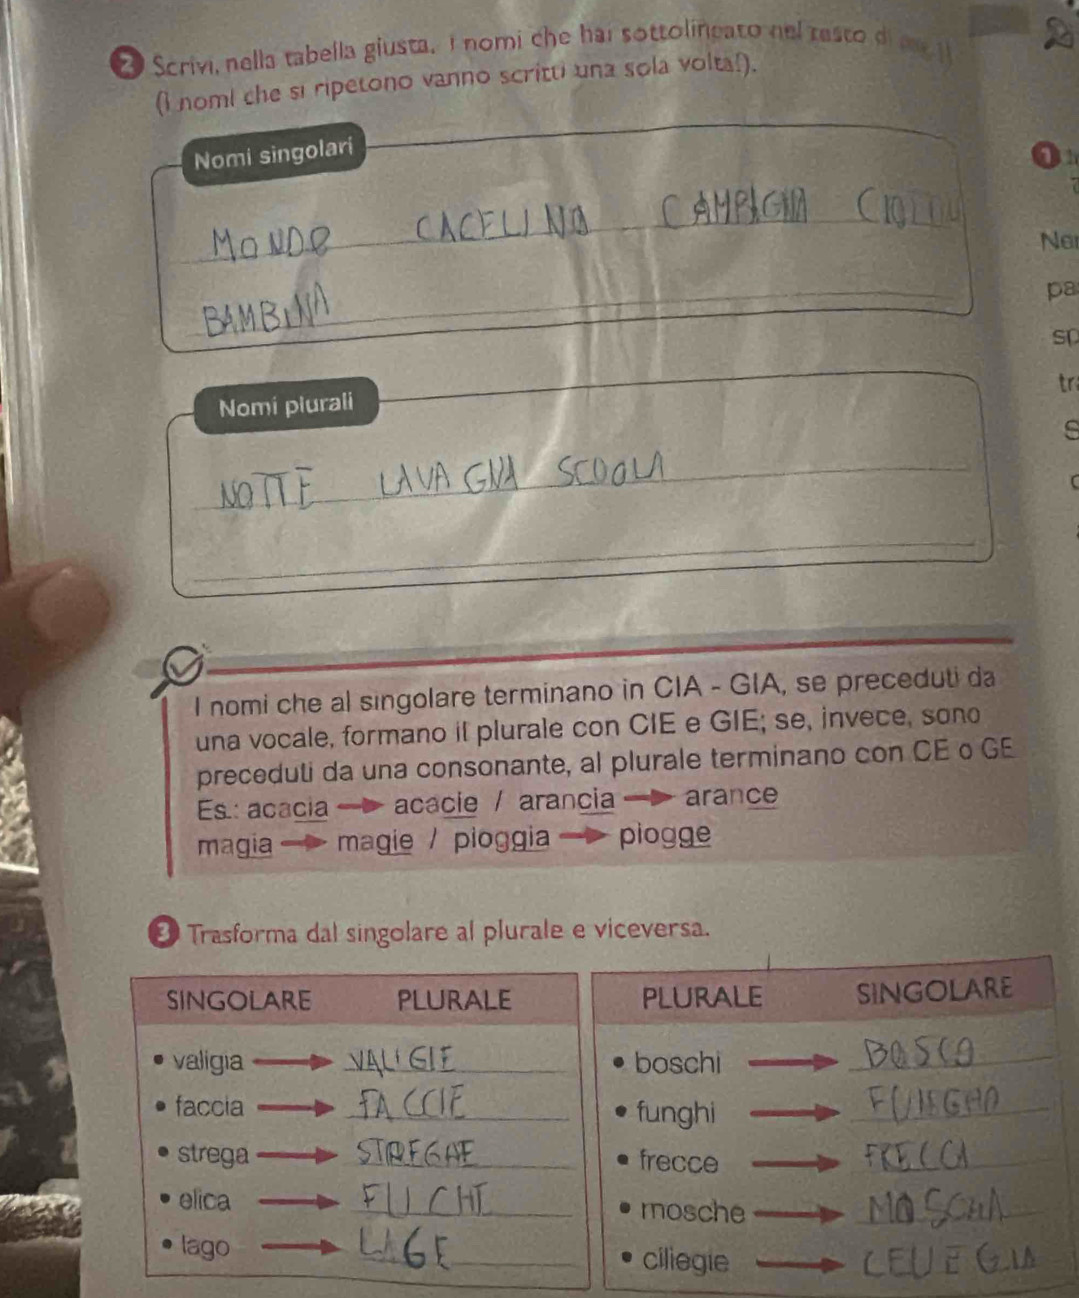 2 Scrivi, nella tabella giusta, i nomi che hai sottolineato nel testo di
(I nomi che si ripetono vanno scritti una sola volta!).
Nomi singolari
MONDO CACELINO
BAMBINA
Nomi plurali
NOTTE LAVAGNA SCOOLA
I nomi che al singolare terminano in CIA - GIA, se preceduti da
una vocale, formano il plurale con CIE e GIE; se, invece, sono
preceduti da una consonante, al plurale terminano con CE o GE
Es.: acacia acacie / arancia arance
magia magie / pioggia piogge
3 Trasforma dal singolare al plurale e viceversa.
SINGOLARE PLURALE PLURALE SINGOLARE
• valigia VALIGIE • boschi BOSCO
• faccia FACCIE • funghi
• strega • frecce FRECCA
• elica • mosche MOSCHA
• lago LAGE • ciliegie